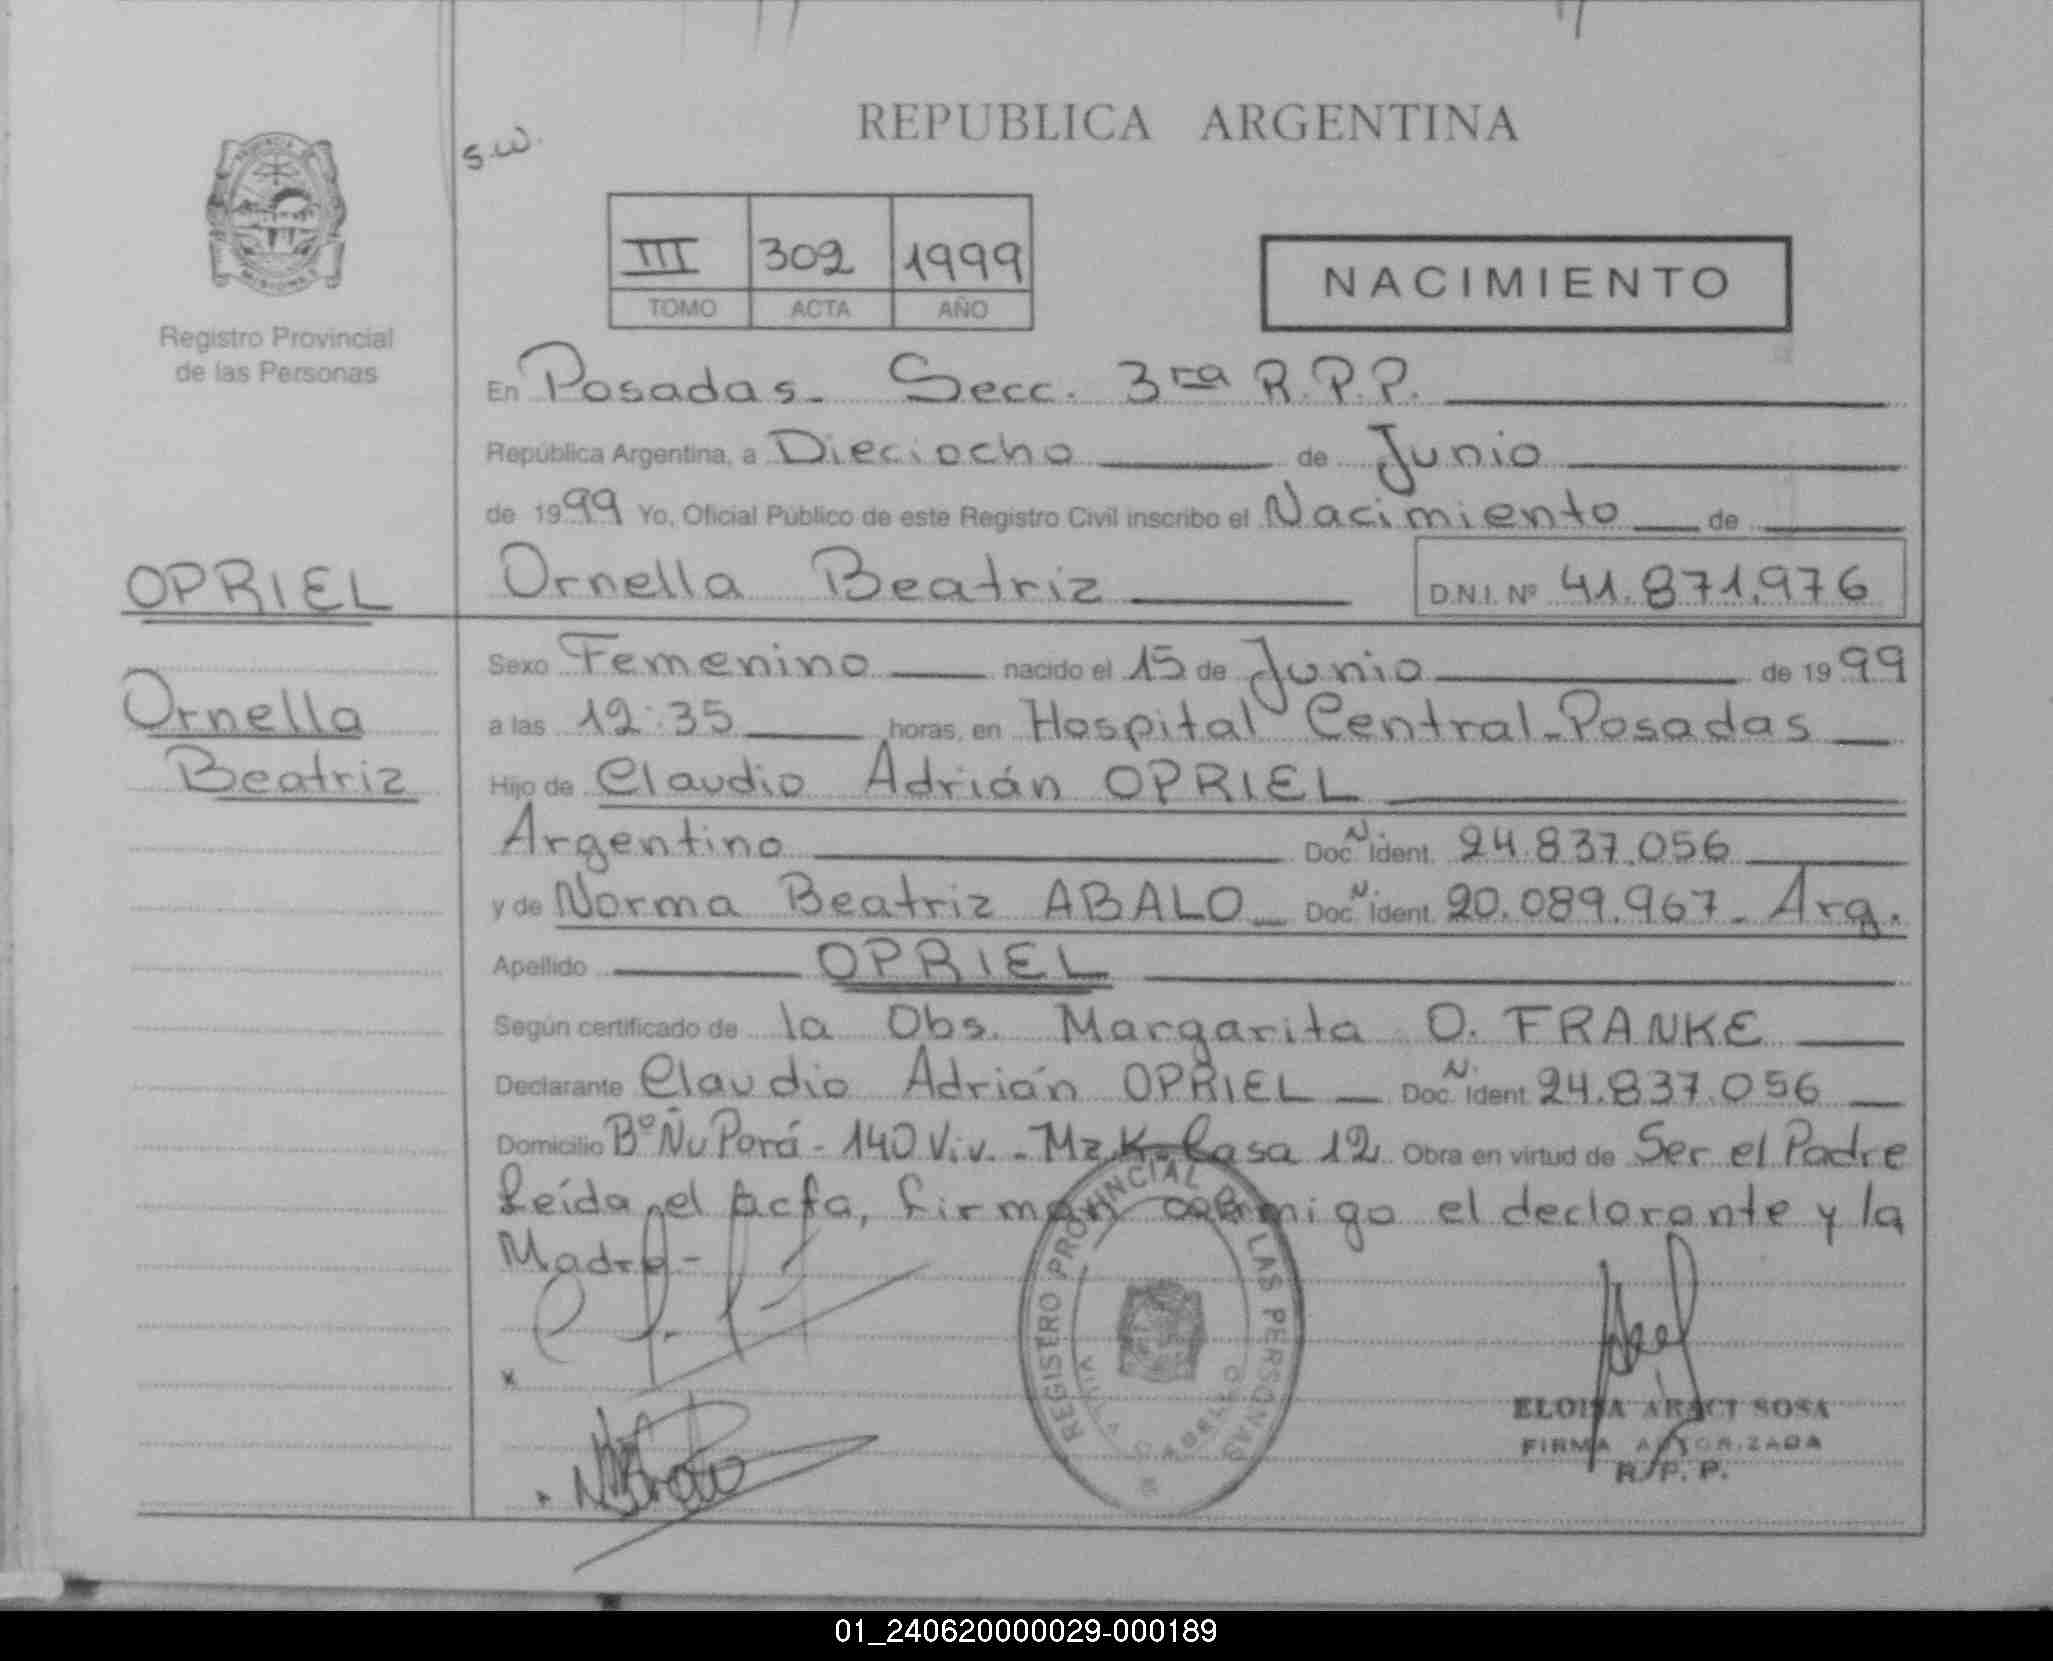 REPUBLICA ARGENTINA
s.w.
III 302 1999
TOMO ACTA AÑO
NACIMIENTO
Registro Provincial
de las Personas
En Posadas. Secc. 3ra R.P.P.
República Argentina, a Dieciocho de Junio
de 1999 Yo, Oficial Público de este Registro Civil inscribo el Nacimiento de
OPRIEL
Ornella Beatriz D.N.I. Nº 41.871.976
Ornella
Beatriz
Sexo Femenino nacido el 15 de Junio de 1999
a las 12:35 horas, en Hospital Central-Posadas
Hijo de Claudio Adrián OPRIEL
Argentino Doc. N. Ident. 24.837.056
y de Norma Beatriz ABALO Doc. N. Ident. 20.089.967- Arg.
Apellido OPRIEL
Según certificado de la Obs. Margarita O. FRANKE
Declarante Claudio Adrián OPRIEL Doc. N. Ident. 24.837.056
Domicilio Bº Ñu Porá - 140 Viv. - Mz. K- Casa 12 Obra en virtud de Ser el Padre
Leída el Acta, firman conmigo el declarante y la
Madre-
REGISTRO PROVINCIAL DE LAS PERSONAS
ELOISA ARACI SOSA
FIRMA AUTORIZADA
R. P. P.
01_240620000029-000189